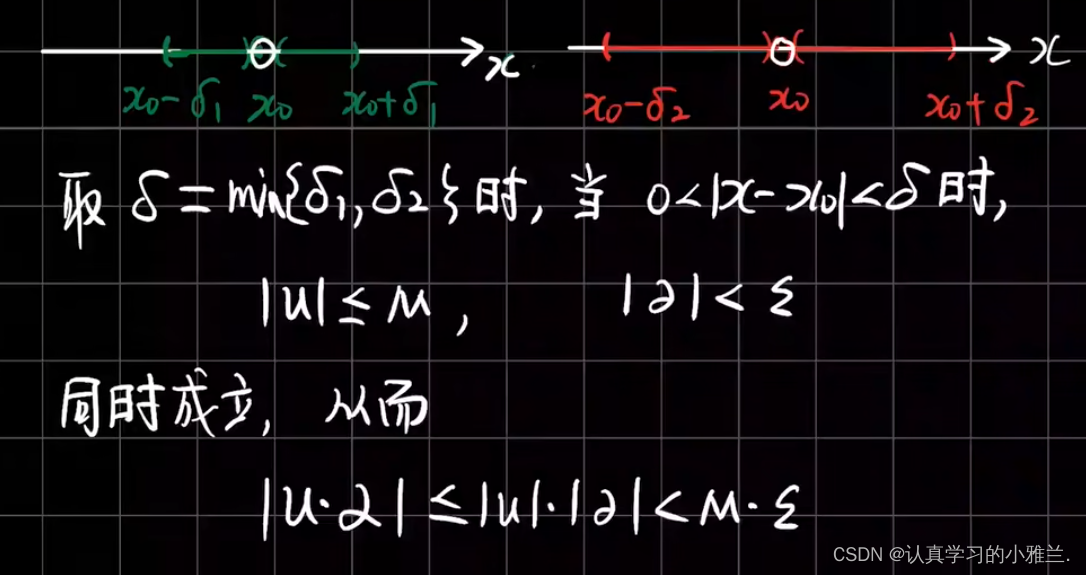 x
x
x₀-δ₁ x₀ x₀+δ₁
x₀-δ₂ x₀ x₀+δ₂
取 δ=min{δ₁,δ₂}时, 当 0<|x-x₀|<δ时,
|u|≤M, |α|<ε
同时成立, 从而
|u·α|≤|u|·|α|<M·ε
CSDN @认真学习的小雅兰.